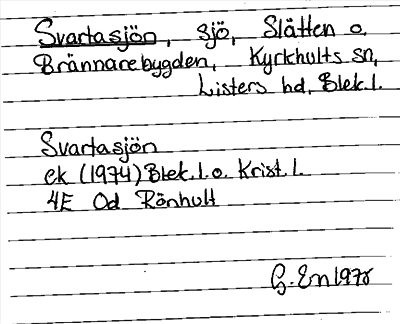 Svartasjön, sjö, Slätten o.
Brännarebygden, Kyrkhults sn,
Listers hd, Blek.l.
Svartasjön
ek (1974) Blek.l.o. Krist.l.
4E Od Rönhult
G. En 1978